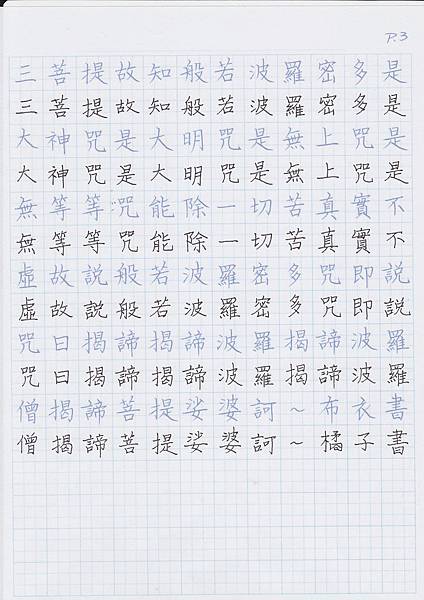 P.3
三菩提故知般若波羅密多是
三菩提故知般若波羅密多是
大神咒是大明咒是無上咒是
大神咒是大明咒是無上咒是
無等等咒能除一切苦真實不
無等等咒能除一切苦真實不
虛故說般若波羅密多咒即說
虛故說般若波羅密多咒即說
咒曰揭諦揭諦波羅揭諦波羅
咒曰揭諦揭諦波羅揭諦波羅
僧揭諦菩提娑婆訶~布衣書
僧揭諦菩提娑婆訶~橘子書